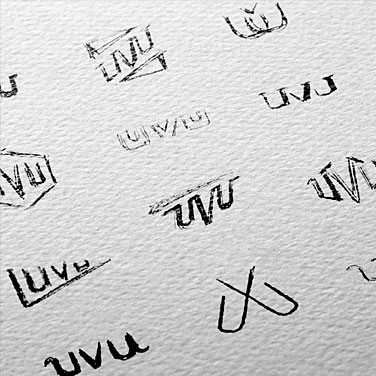 UVU
UVU
UVU
UVU
UVU
UVU
UVU
uvu
uvu